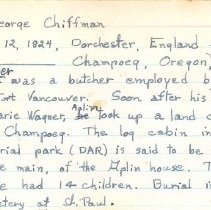 eorge Chiffman
12, 1824, Dorchester, England
Champoeg, Oregon,
was a butcher employed b
Fort Vancouver. Soon after his
arie Wagner, Aplin took up a land c
Champoeg. The log cabin in
rial park (DAR) is said to be
e main, of the Aplin house. T
e had 14 children. Burial i
etery at St. Paul.